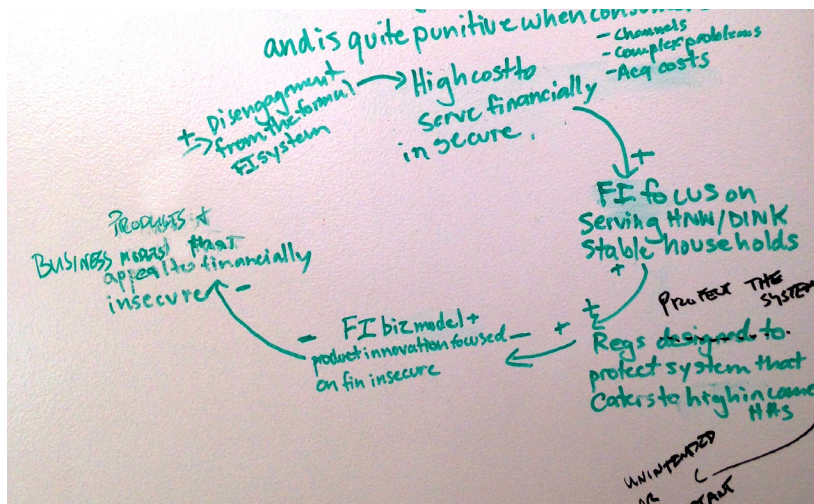 and is quite punitive when
- Channels
- Complex problems
- Acq costs
+
Disengagment
from the formal
FI system
High cost to
serve financially
insecure.
+
FI focus on
Serving HNW/DINK
Stable households
+
+
PROTECT THE
SYSTEM
Regs designed to
protect system that
Caters to high income
HHs
+
FI biz model +
product innovation focused
on fin insecure
-
-
PRODUCTS +
BUSINESS MODEL THAT
appeal to financially
insecure
-
UNINTENDED